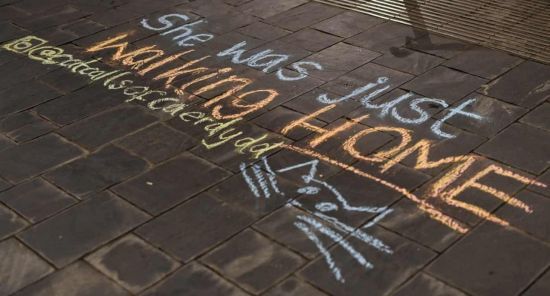 She was just
walking HOME
@catcallsofcaerdydd